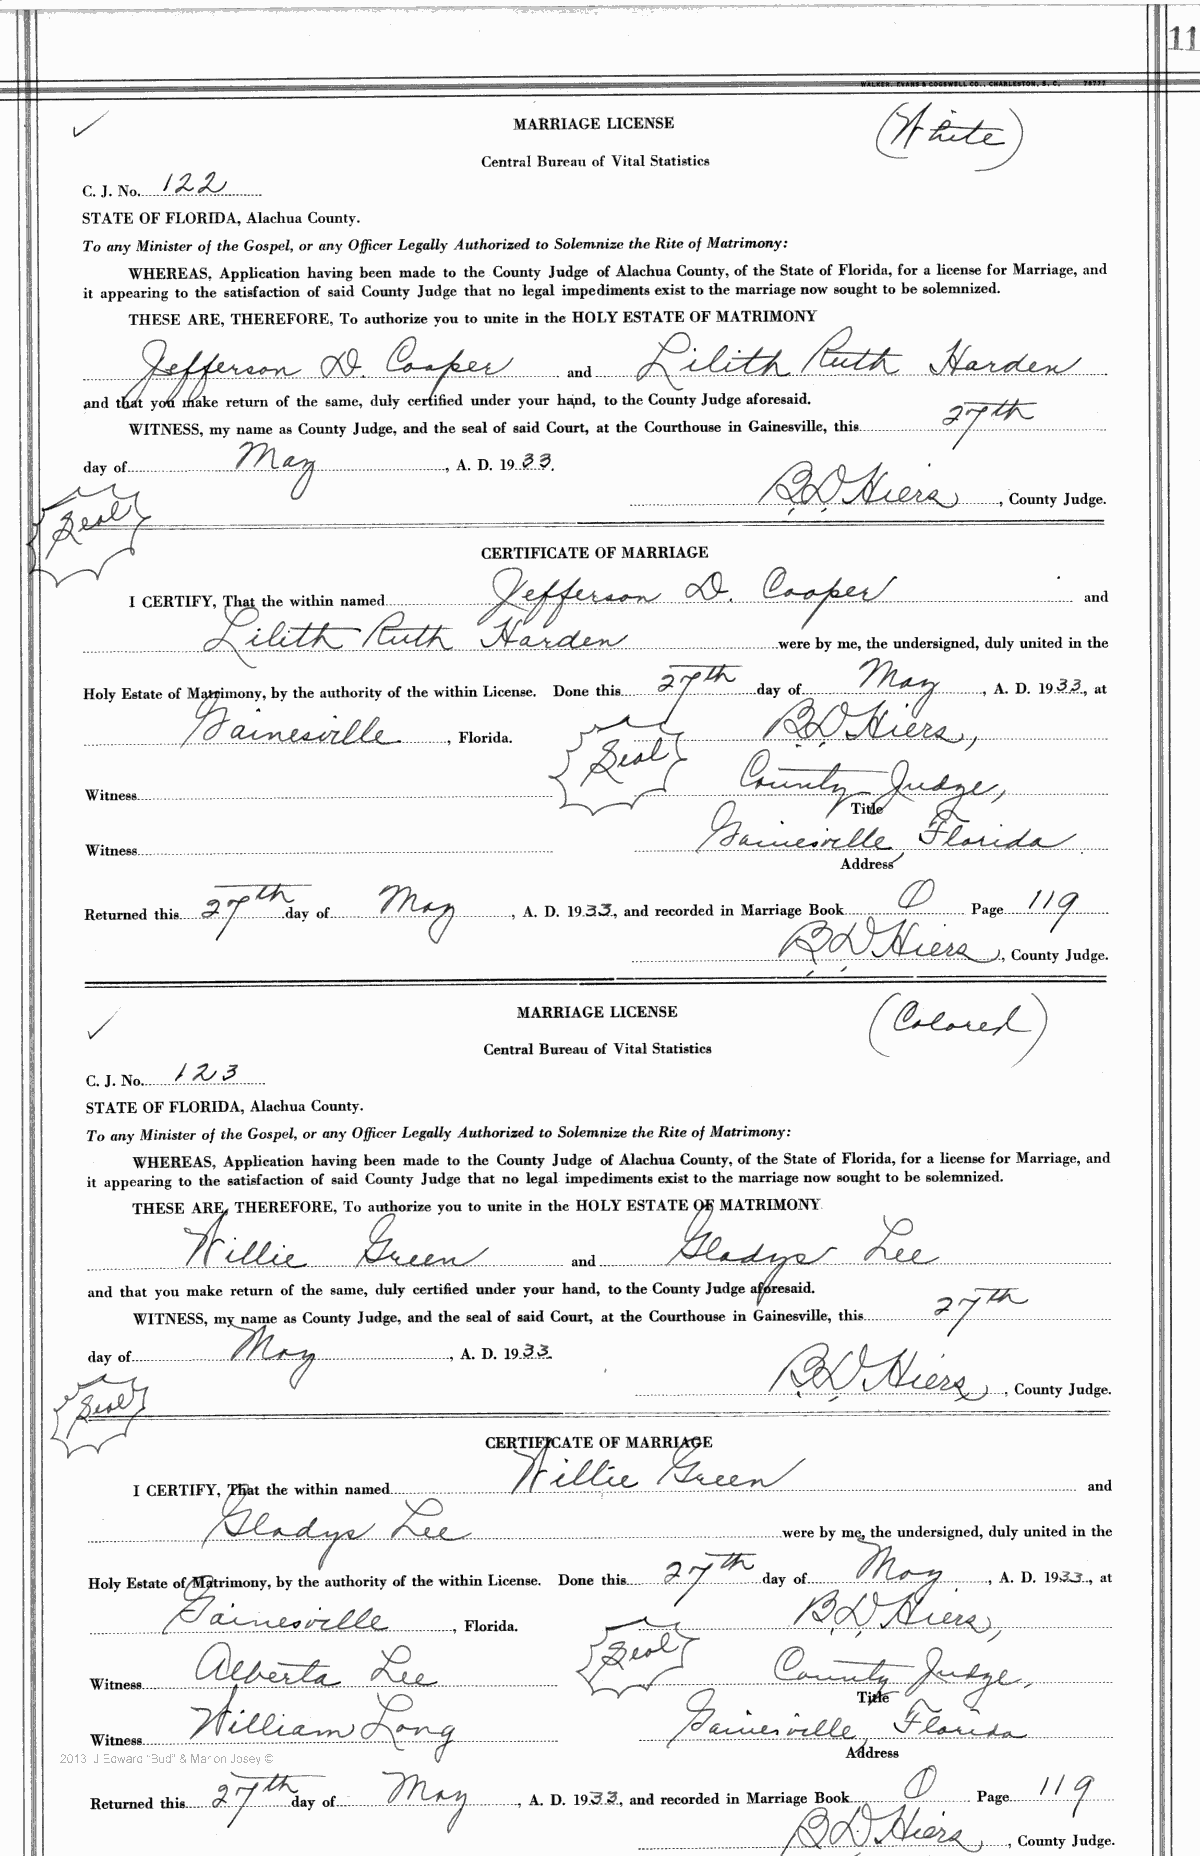 11
WALKER, EVANS & COGSWELL CO., CHARLESTON, S. C. 
MARRIAGE LICENSE (White)
Central Bureau of Vital Statistics
C. J. No. 122
STATE OF FLORIDA, Alachua County.
To any Minister of the Gospel, or any Officer Legally Authorized to Solemnize the Rite of Matrimony:
WHEREAS, Application having been made to the County Judge of Alachua County, of the State of Florida, for a license for Marriage, and
it appearing to the satisfaction of said County Judge that no legal impediments exist to the marriage now sought to be solemnized.
THESE ARE, THEREFORE, To authorize you to unite in the HOLY ESTATE OF MATRIMONY
Jefferson D. Cooper and Lilith Ruth Harden
and that you make return of the same, duly certified under your hand, to the County Judge aforesaid.
WITNESS, my name as County Judge, and the seal of said Court, at the Courthouse in Gainesville, this 27th
day of May, A. D. 1933.
B D Hiers, County Judge.
Seal
CERTIFICATE OF MARRIAGE
I CERTIFY, That the within named Jefferson D. Cooper and
Lilith Ruth Harden were by me, the undersigned, duly united in the
Holy Estate of Matrimony, by the authority of the within License. Done this 27th day of May, A. D. 1933, at
Gainesville, Florida. Seal B D Hiers,
Witness County Judge,
Title
Witness Gainesville, Florida
Address
Returned this 27th day of May, A. D. 1933, and recorded in Marriage Book O Page 119
B D Hiers, County Judge.
MARRIAGE LICENSE (Colored)
Central Bureau of Vital Statistics
C. J. No. 123
STATE OF FLORIDA, Alachua County.
To any Minister of the Gospel, or any Officer Legally Authorized to Solemnize the Rite of Matrimony:
WHEREAS, Application having been made to the County Judge of Alachua County, of the State of Florida, for a license for Marriage, and
it appearing to the satisfaction of said County Judge that no legal impediments exist to the marriage now sought to be solemnized.
THESE ARE, THEREFORE, To authorize you to unite in the HOLY ESTATE OF MATRIMONY
Willie Green and Gladys Lee
and that you make return of the same, duly certified under your hand, to the County Judge aforesaid.
WITNESS, my name as County Judge, and the seal of said Court, at the Courthouse in Gainesville, this 27th
day of May, A. D. 1933.
B D Hiers, County Judge.
Seal
CERTIFICATE OF MARRIAGE
I CERTIFY, That the within named Willie Green and
Gladys Lee were by me, the undersigned, duly united in the
Holy Estate of Matrimony, by the authority of the within License. Done this 27th day of May, A. D. 1933, at
Gainesville, Florida. Seal B D Hiers,
Witness Alberta Lee County Judge,
Title
Witness William Long Gainesville, Florida
2013 J Edward "Bud" & Marion Josey © Address
Returned this 27th day of May, A. D. 1933, and recorded in Marriage Book O Page 119
B D Hiers, County Judge.